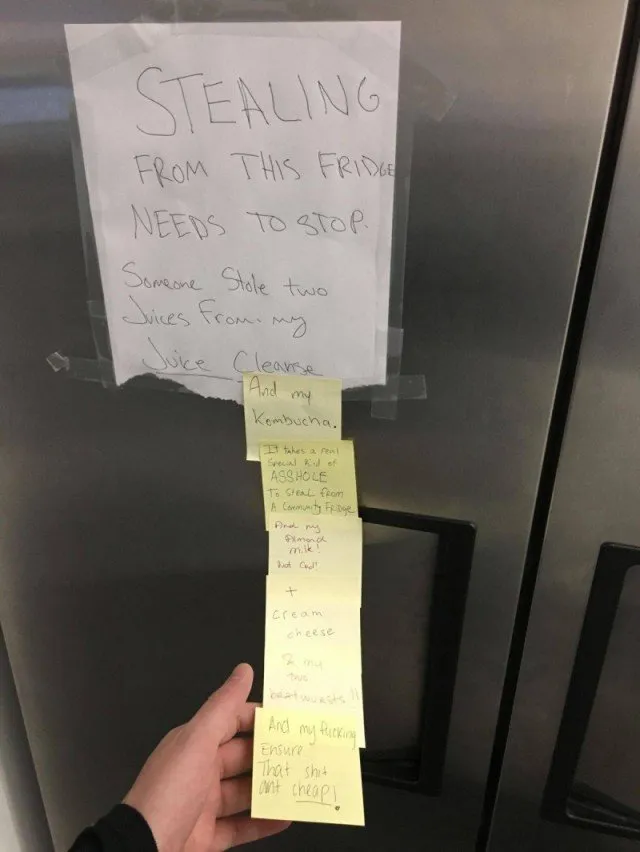 STEALING
FROM THIS FRIDGE
NEEDS TO STOP.
Someone Stole two
Juices From my
Juice Cleanse
And my
Kombucha.
It takes a real
Special Kid of
ASSHOLE
To Steal from
A Community Fridge
And my
Almond
milk!
Not Cool!
+
cream
cheese
& my
two
bratwursts!!
And my fucking
Ensure
That shit
aint cheap!